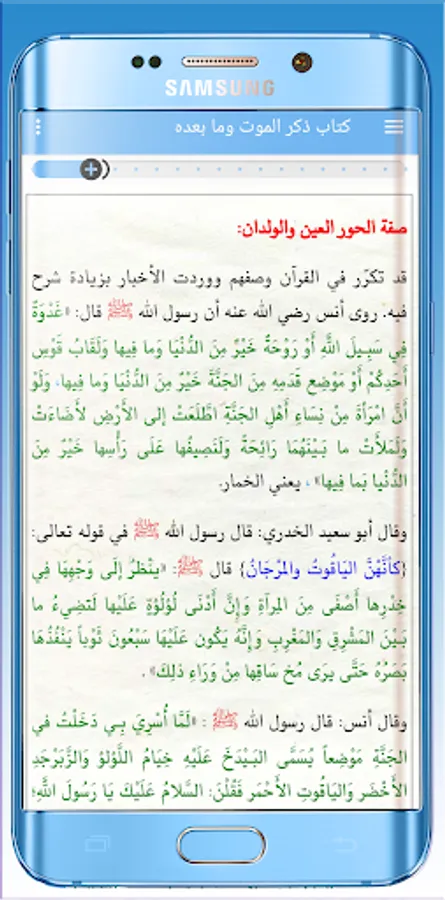 SAMSUNG
كتاب ذكر الموت وما بعده
صفة الحور العين والولدان:
قد تكرّر في القرآن وصفهم ووردت الأخبار بزيادة شرح
فيه. روى أنس رضي الله عنه أن رسول الله ﷺ قال: «غَدْوَةٌ
فِي سَبِيلِ اللَّهِ أَوْ رَوْحَةٌ خَيْرٌ مِنَ الدُّنْيَا وَما فِيها وَلَقَابُ قَوْسِ
أَحَدِكُمْ أَوْ مَوْضِعِ قَدَمِهِ مِنَ الجَنَّةِ خَيْرٌ مِنَ الدُّنْيَا وَما فِيها، وَلَوْ
أَنَّ امْرَأَةً مِنْ نِسَاءِ أَهْلِ الجَنَّةِ اطَّلَعَتْ إلى الأَرْضِ لأَضَاءَتْ
وَلَمَلأَتْ ما بَيْنَهُمَا رَائِحَةً وَلَنَصِيفُها عَلَى رَأْسِها خَيْرٌ مِنَ
الدُّنْيَا بَما فِيها» ، يعني الخمار.
وقال أبو سعيد الخدري: قال رسول الله ﷺ في قوله تعالى:
{كَأنَّهُنَّ اليَاقُوتُ والمَرْجَانُ} قال ﷺ: «يَنْظُرُ إلَى وَجْهِهَا فِي
خِدْرِها أَصْفَى مِنَ المِرآةِ وَإنَّ أَدْنَى لُؤْلُؤَةٍ عَلَيْها لَتضِيءُ ما
بَيْنَ المَشْرِقِ وَالمَغْرِبِ وَإنَّهُ يَكُون عَلَيْهَا سَبْعُونَ ثَوْباً يَنْفُذُهَا
بَصَرُهُ حَتَّى يرَى مُخ سَاقِها مِنْ وَرَاءِ ذلِكَ» .
وقال أنس: قال رسول الله ﷺ : «لَمَّا أُسْرِيَ بِي دَخَلْتُ في
الجَنَّةِ مَوْضِعاً يُسَمَّى البَيْدَخَ عَلَيْهِ خِيَامُ اللُّؤْلؤِ وَالزَّبَرْجَدِ
الأَخْضَرِ وَاليَاقُوتِ الأَحْمَرِ فَقُلْنَ: السَّلامُ عَلَيْكَ يَا رَسُولَ اللَّهِ؛